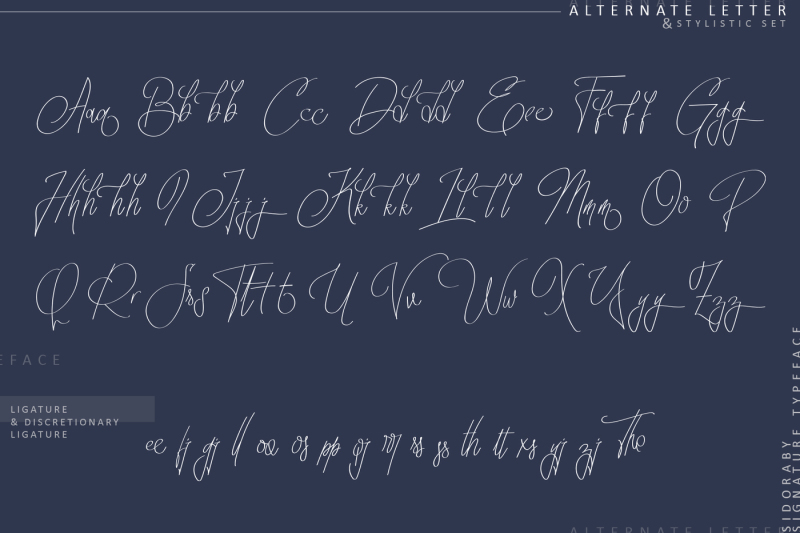 ALTERNATE LETTER
& STYLISTIC SET
Aaa Bbbb Ccc Dddd Eee Ffff Ggg
Hhhhh I Jjjj Kkkk Llll Mmm Oo P
Q Rr Sss Tttt U Vv Ww X Yyy Zzz
EFACE
LIGATURE
& DISCRETIONARY
LIGATURE
ee fj gj ll oa os pp qj rr ss th tt xs yj zj The
SIDORABY
SIGNATURE TYPEFACE
ALTERNATE LETTER